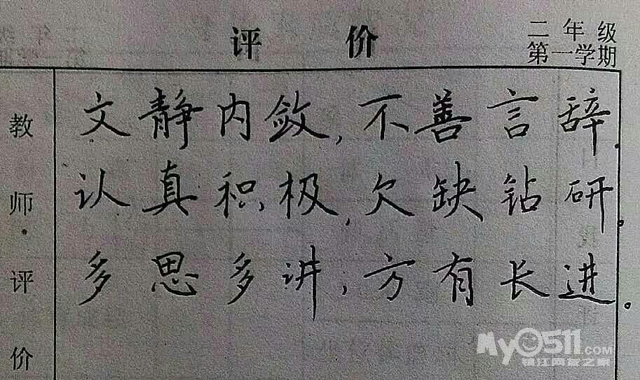 评 价
二年级
第一学期
教师·评价
文静内敛,不善言辞.
认真积极,欠缺钻研.
多思多讲,方有长进。
My0511.com
镇江网友之家